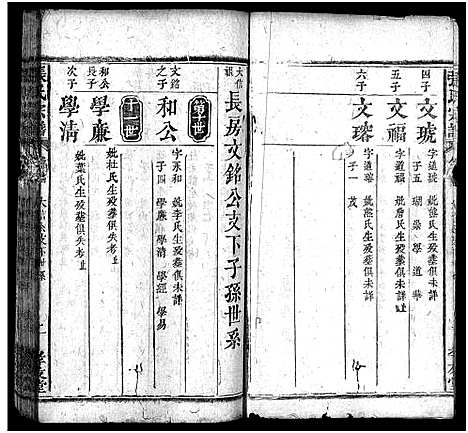 張氏宗譜
四子
文琥
字道琥
妣熊氏生殁葬俱未詳
子五
五子
文福
字道福
妣詹氏生殁葬俱未詳
六子
文瑧
妣熊氏生殁葬俱未詳
子一
大信祖
長房文銘公支下子孫世系
文銘之子
和公
字永和
妣李氏生殁葬俱未詳
子四 學廉 學清 學經 學易
和公長子
學廉
妣杜氏生殁葬俱失考
次子
學清
妣葉氏生殁葬俱失考
張氏宗譜
孝友堂